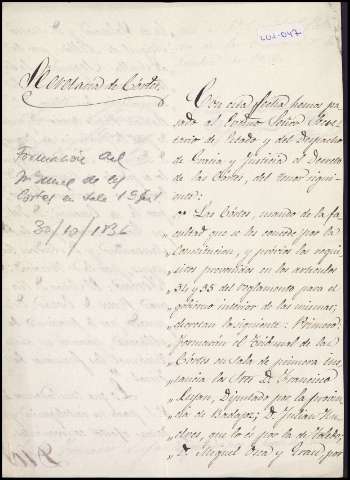 Secretaria de Córtes.
Formación del
Tribunal de las
Cortes en Sala 1ª Inst
30/10/1836
Con esta fecha hemos pa-
sado al Escmo. Señor Secre-
tario de Estado y del Despacho
de Gracia y Justicia el Decreto
de las Córtes, del tenor siguien-
te:
"Las Córtes, usando de la fa-
cultad que se les concede por la
Constitucion, y previos los requi-
sitos prevenidos en los articulos
34 y 35 del reglamento para el
gobierno interior de las mismas,
decretan lo siguiente: Primero:
Formarán el Tribunal de las
Córtes en sala de primera ins-
tancia los Sres. D. Francisco
Lujan, Diputado por la provin-
cia de Badajoz; D. Julian Hu-
elves, que lo es por la de Toledo;
D. Miguel Osca y Grau por